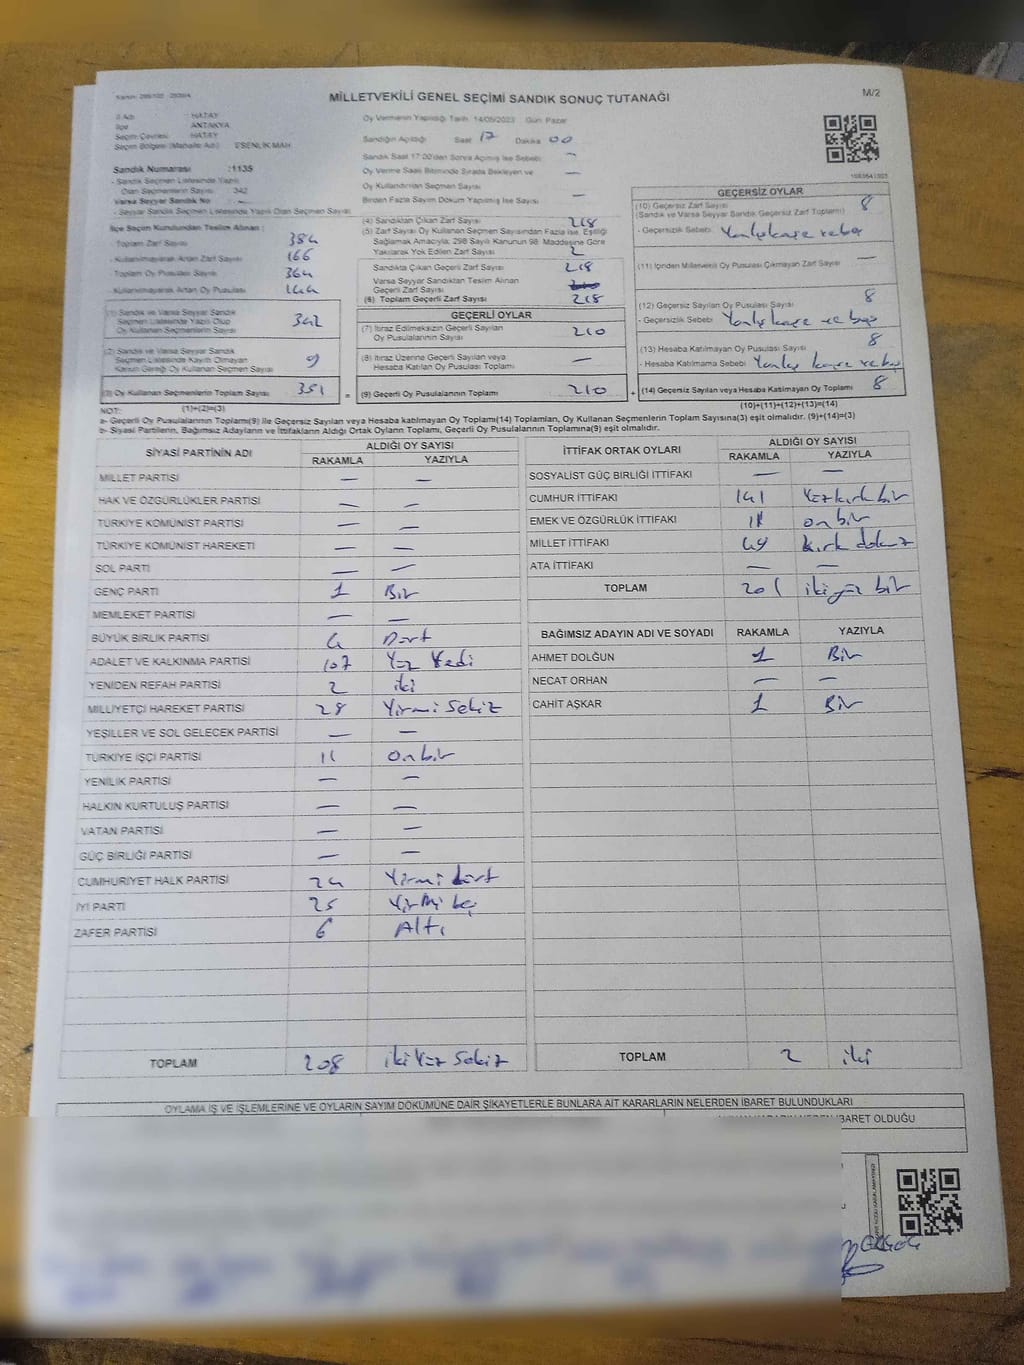 MİLLETVEKİLİ GENEL SEÇİMİ SANDIK SONUÇ TUTANAĞI
M/2
İl Adı : HATAY
İlçe : ANTAKYA
Seçim Çevresi : HATAY
Seçim Bölgesi (Mahalle Adı) : ESENLİK MAH
Sandık Numarası :1135
- Sandık Seçmen Listesinde Yazılı
Olan Seçmenlerin Sayısı : 342
Varsa Seyyar Sandık No
- Seyyar Sandık Seçmen Listesinde Yazılı Olan Seçmen Sayısı
İlçe Seçim Kurulundan Teslim Alınan :
- Toplam Zarf Sayısı 384
- Kullanılmayarak Artan Zarf Sayısı 166
Toplam Oy Pusulası Sayısı 364
Kullanılmayarak Artan Oy Pusulası 144
(1) Sandık ve Varsa Seyyar Sandık
Seçmen Listesinde Yazılı Olup
Oy Kullanan Seçmenlerin Sayısı 342
(2) Sandık ve Varsa Seyyar Sandık
Seçmen Listesinde Kayıtlı Olmayan
Kanun Gereği Oy Kullanan Seçmen Sayısı 9
(3) Oy Kullanan Seçmenlerin Toplam Sayısı 351
(1)+(2)=(3)
Oy Vermenin Yapıldığı Tarih: 14/05/2023 Gün: Pazar
Sandığın Açıldığı Saat 17 Dakika 00
Sandık Saat 17:00'den Sonra Açılmış İse Sebebi: —
Oy Verme Saati Bitiminde Sırada Bekleyen ve
Oy Kullandırılan Seçmen Sayısı —
Birden Fazla Sayım Döküm Yapılmış İse Sayısı —
(4) Sandıktan Çıkan Zarf Sayısı 218
(5) Zarf Sayısı Oy Kullanan Seçmen Sayısından Fazla ise, Eşitliği
Sağlamak Amacıyla, 298 Sayılı Kanunun 98. Maddesine Göre
Yakılarak Yok Edilen Zarf Sayısı 2
Sandıkta Çıkan Geçerli Zarf Sayısı 218
Varsa Seyyar Sandıktan Teslim Alınan
Geçerli Zarf Sayısı
(6) Toplam Geçerli Zarf Sayısı 218
GEÇERLİ OYLAR
(7) İtiraz Edilmeksizin Geçerli Sayılan
Oy Pusulalarının Sayısı 210
(8) İtiraz Üzerine Geçerli Sayılan veya
Hesaba Katılan Oy Pusulası Toplamı —
= (9) Geçerli Oy Pusulalarının Toplamı 210
GEÇERSİZ OYLAR
(10) Geçersiz Zarf Sayısı 8
(Sandık ve Varsa Seyyar Sandık Geçersiz Zarf Toplamı)
- Geçersizlik Sebebi:
(11) İçinden Milletvekili Oy Pusulası Çıkmayan Zarf Sayısı —
(12) Geçersiz Sayılan Oy Pusulası Sayısı 8
- Geçersizlik Sebebi:
(13) Hesaba Katılmayan Oy Pusulası Sayısı 8
- Hesaba Katılmama Sebebi
+ (14) Geçersiz Sayılan veya Hesaba Katılmayan Oy Toplamı 8
(10)+(11)+(12)+(13)=(14)
NOT:
a- Geçerli Oy Pusulalarının Toplamı(9) ile Geçersiz Sayılan veya Hesaba katılmayan Oy Toplamı(14) Toplamları, Oy Kullanan Seçmenlerin Toplam Sayısına(3) eşit olmalıdır. (9)+(14)=(3)
b- Siyasi Partilerin, Bağımsız Adayların ve İttifakların Aldığı Ortak Oyların Toplamı, Geçerli Oy Pusulalarının Toplamına(9) eşit olmalıdır.
SİYASİ PARTİNİN ADI ALDIĞI OY SAYISI
RAKAMLA YAZIYLA
MİLLET PARTİSİ — —
HAK VE ÖZGÜRLÜKLER PARTİSİ — —
TÜRKİYE KOMÜNİST PARTİSİ — —
TÜRKİYE KOMÜNİST HAREKETİ — —
SOL PARTİ — —
GENÇ PARTİ 1 Bir
MEMLEKET PARTİSİ — —
BÜYÜK BİRLİK PARTİSİ 4 Dört
ADALET VE KALKINMA PARTİSİ 107 Yüz Yedi
YENİDEN REFAH PARTİSİ 2 iki
MİLLİYETÇİ HAREKET PARTİSİ 28 Yirmi Sekiz
YEŞİLLER VE SOL GELECEK PARTİSİ — —
TÜRKİYE İŞÇİ PARTİSİ 11 On bir
YENİLİK PARTİSİ — —
HALKIN KURTULUŞ PARTİSİ — —
VATAN PARTİSİ — —
GÜÇ BİRLİĞİ PARTİSİ — —
CUMHURİYET HALK PARTİSİ 24 Yirmi dört
İYİ PARTİ 25 Yirmi beş
ZAFER PARTİSİ 6 Altı
TOPLAM 208 iki Yüz Sekiz
İTTİFAK ORTAK OYLARI ALDIĞI OY SAYISI
RAKAMLA YAZIYLA
SOSYALİST GÜÇ BİRLİĞİ İTTİFAKI — —
CUMHUR İTTİFAKI 141 Yüz kırk bir
EMEK VE ÖZGÜRLÜK İTTİFAKI 11 on bir
MİLLET İTTİFAKI 49 kırk dokuz
ATA İTTİFAKI — —
TOPLAM 201 iki yüz bir
BAĞIMSIZ ADAYIN ADI VE SOYADI RAKAMLA YAZIYLA
AHMET DOLĞUN 1 Bir
NECAT ORHAN — —
CAHİT AŞKAR 1 Bir
TOPLAM 2 iki
OYLAMA İŞ VE İŞLEMLERİNE VE OYLARIN SAYIM DÖKÜMÜNE DAİR ŞİKAYETLERLE BUNLARA AİT KARARLARIN NELERDEN İBARET BULUNDUKLARI
İBARET OLDUĞU